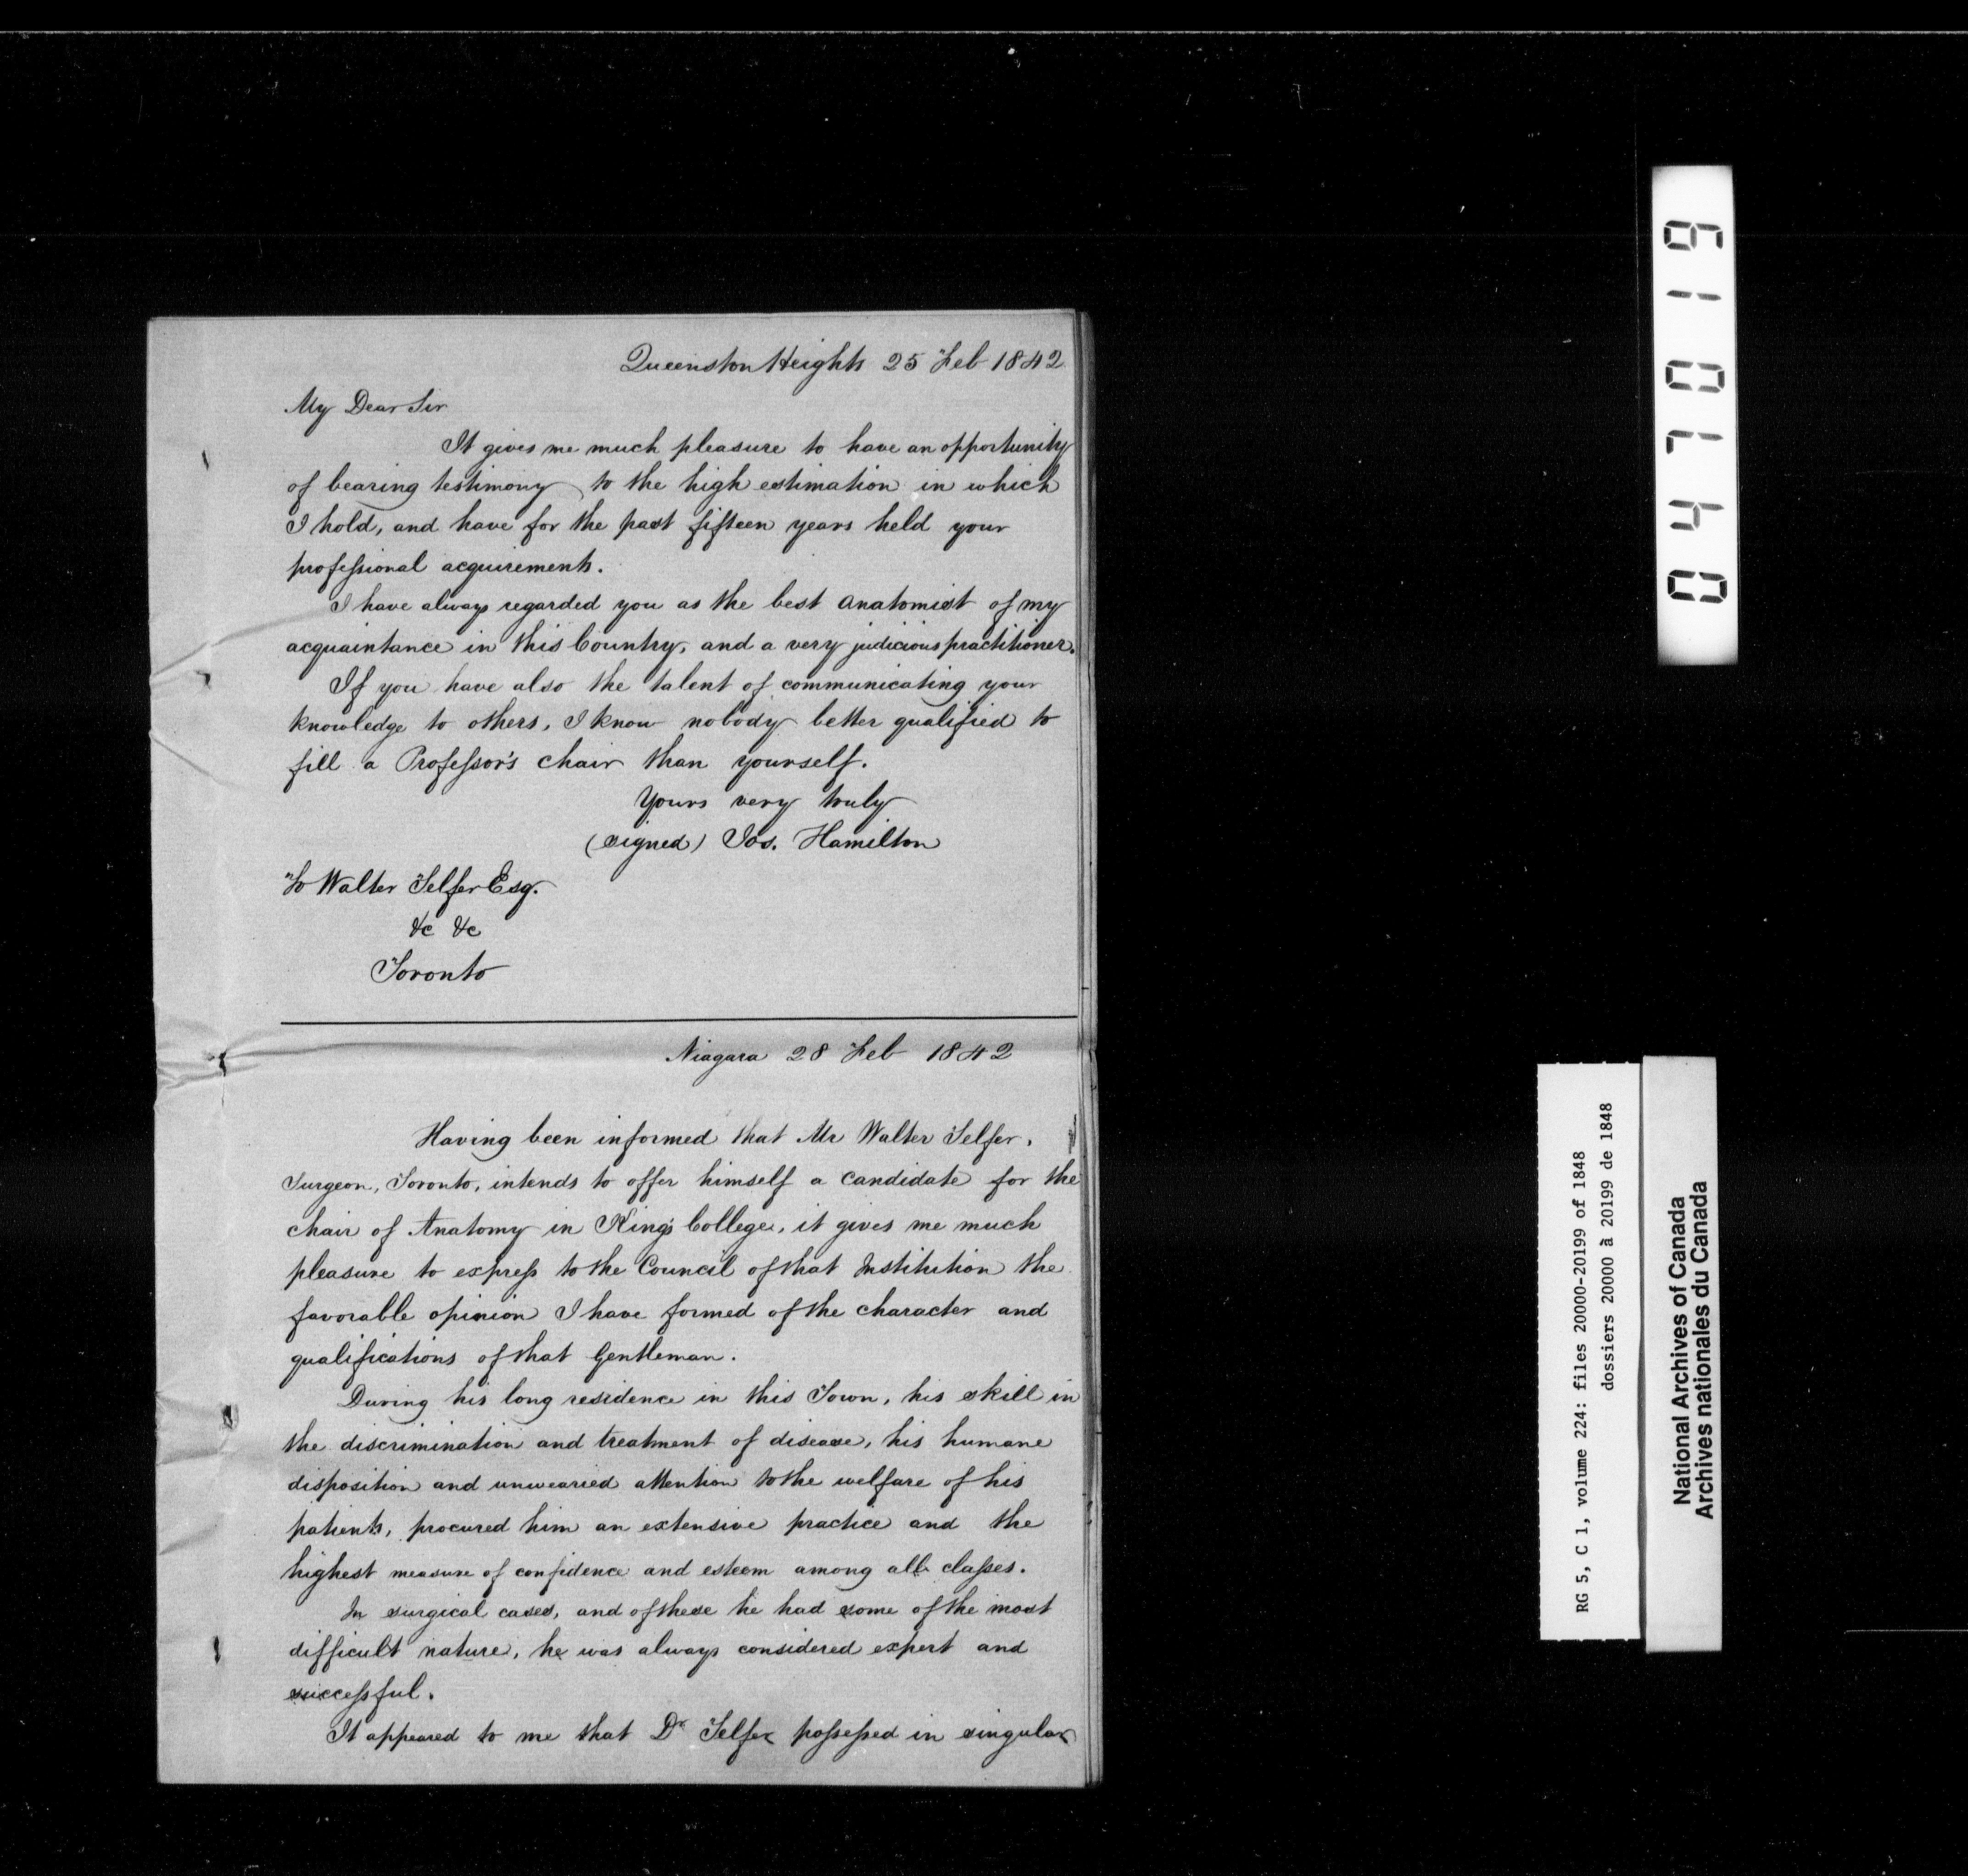 Queenston Heights 25 Feb 1842
My Dear Sir
It gives me much pleasure to have an opportunity
of bearing testimony to the high estimation in which
I hold, and have for the past fifteen years held your
professional acquirements.
I have always regarded you as the best anatomist of my
acquaintance in this Country, and a very judicious practitioner.
If you have also the talent of communicating your
knowledge to others, I know nobody better qualified to
fill a Professor's chair than yourself.
Yours very truly
(signed) Jos. Hamilton
To Walter Telfer Esq.
&c &c
Toronto
Niagara 28 Feb 1842
Having been informed that Mr Walter Telfer,
Surgeon, Toronto, intends to offer himself a candidate for the
chair of Anatomy in King's College, it gives me much
pleasure to express to the Council of that Institution the
favorable opinion I have formed of the character and
qualifications of that Gentleman.
During his long residence in this Town, his skill in
the discrimination and treatment of disease, his humane
disposition and unwearied attention to the welfare of his
patients, procured him an extensive practice and the
highest measure of confidence and esteem among all classes.
In surgical cases, and of these he had some of the most
difficult nature, he was always considered expert and
successful.
It appeared to me that Dr Telfer possessed in singular
047019
RG 5, C 1, volume 224: files 20000-20199 of 1848
dossiers 20000 à 20199 de 1848
National Archives of Canada
Archives nationales du Canada